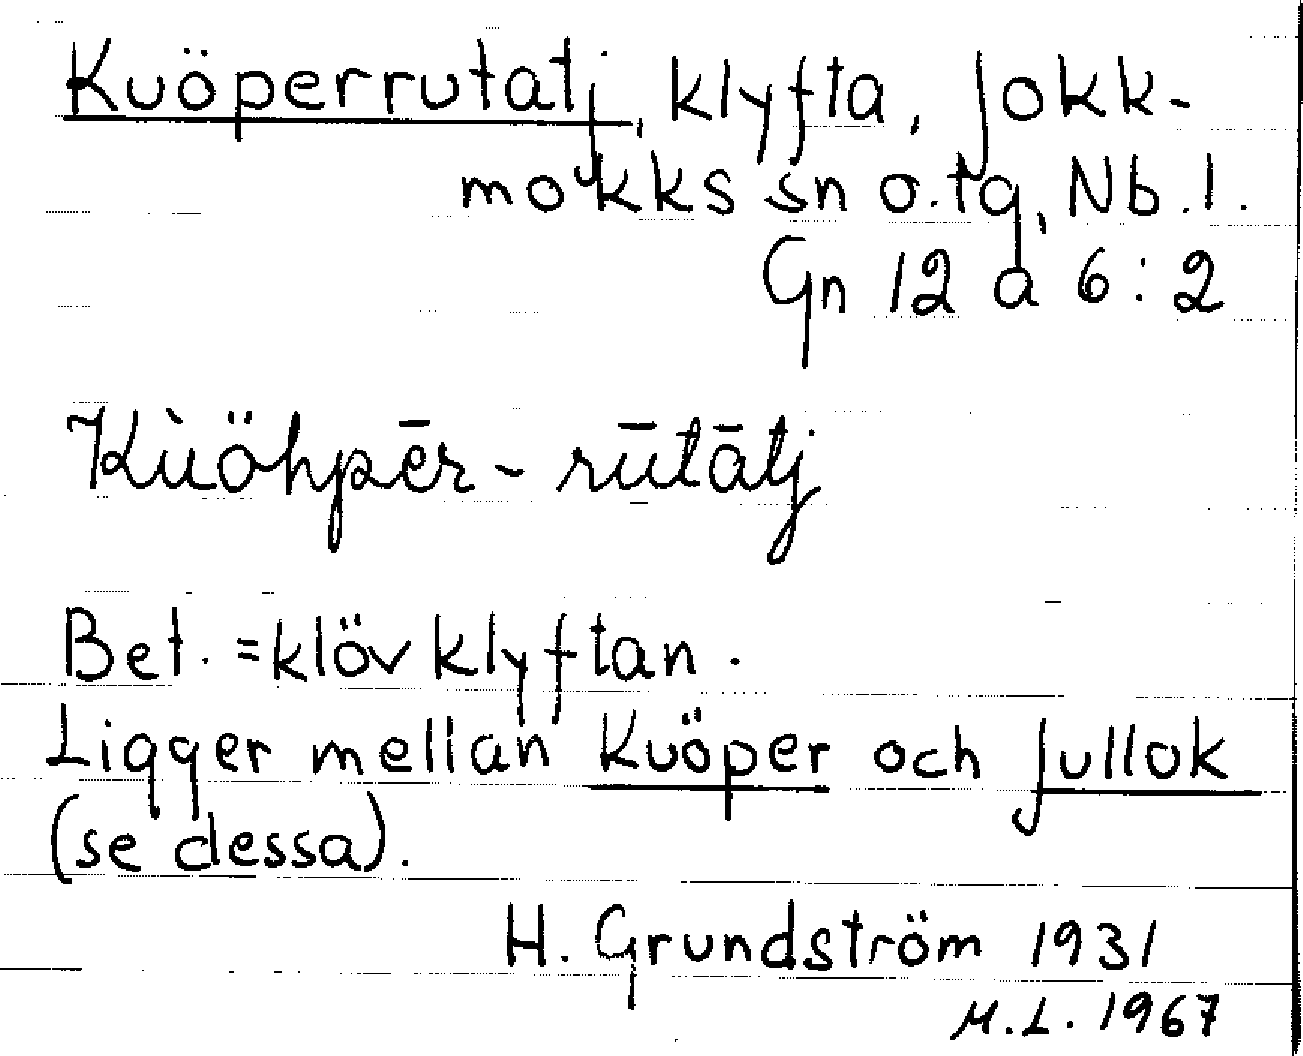 Kuöperrutatj, klyfta, Jokk-
mokks sn o. tg, Nb. l.
Gn 12 a 6:2
Kùöhpēr-rūtātj
Bet. = klövklyftan.
Ligger mellan Kuöper och Jullok
(se dessa).
H. Grundström 1931
M.L. 1967